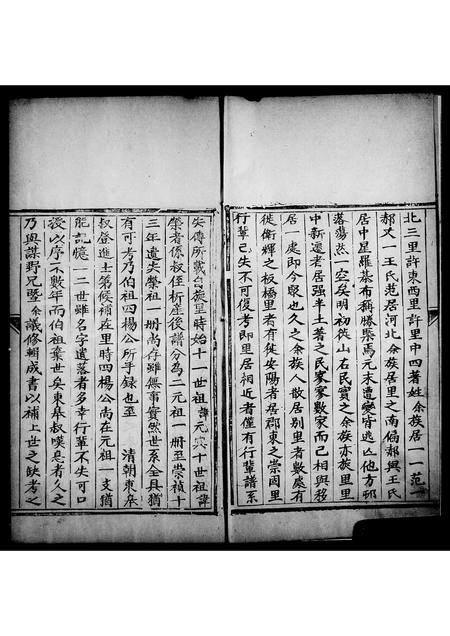 北三里許東西里許里中四著姓余族居一一范一
郝又一王氏范居河北余族居里之南偏郝與王氏
居中星羅棊布稱勝槩焉元末遭變皆逃凶他方邨
落蕩然一空矣明初從山右民實之余族亦族里里
中新遷者居强半土著之民家家數家而已相與移
居一處即今聚也久之余族人散居別里者數處有
徙衛輝之板橋里者有徙安陽者居郡東之崇固里
行輩已失不可復考即里居相近者僅有行輩譜系
失傳所載台族皇時始十一世祖諱元宾十世祖諱
榮者係叔侄析產後譜分為二元祖一册至崇禎十
三年遺失榮祖一册尚存雖無事實然世系全具猶
有可考乃伯祖四楊公所手錄也至 清朝東皋
叔登進士第候補在里時四楊公尚在元祖一支猶
能記憶一二世雖名字遺落者多幸行輩不失可口
授以序不數年而伯祖棄世矣東皋叔嘆息者久之
乃與謀野兄暨余議修輯成書以補上世之缺考之